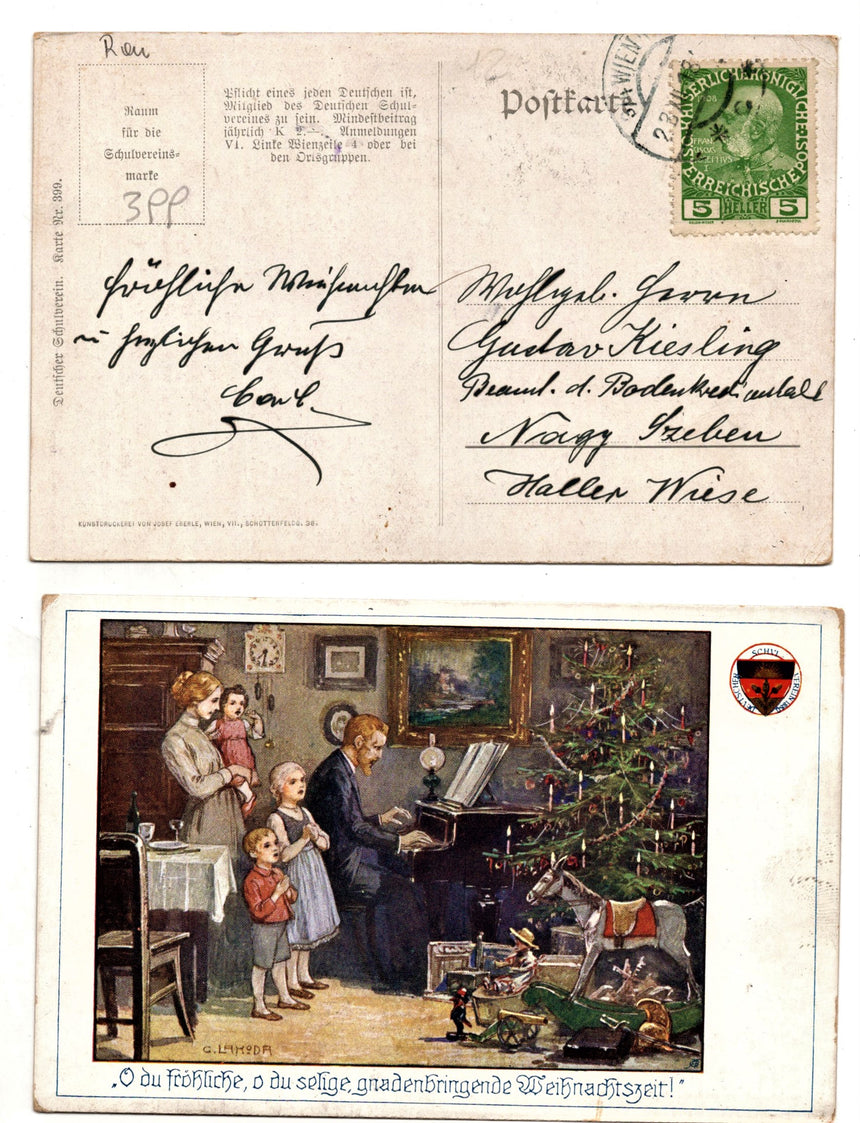 Rau
Raum
für die
Schulvereins-
marke
399
Pflicht eines jeden Deutschen ist,
Mitglied des Deutschen Schul-
vereines zu sein. Mindestbeitrag
jährlich K 2.— Anmeldungen
VI. Linke Wienzeile 4 oder bei
den Ortsgruppen.
Postkarte
WIEN
23.XII.
KAISERLICHE KÖNIGLICHE
ÖSTERREICHISCHE POST
5 HELLER 5
Deutscher Schulverein. Karte Nr. 399.
Fröhliche Weihnachten
u herzlichen Gruß
Carl.
Wohlgeb. Herrn
Gustav Kiesling
Beamt. d. Bodenkreditanstalt
Nagy Szeben
Haller Wiese
KUNSTDRUCKEREI VON JOSEF EBERLE, WIEN, VII., SCHOTTENFELDG. 38.
DEUTSCHER SCHVLVEREIN 1880
„O du fröhliche, o du selige, gnadenbringende Weihnachtszeit!"